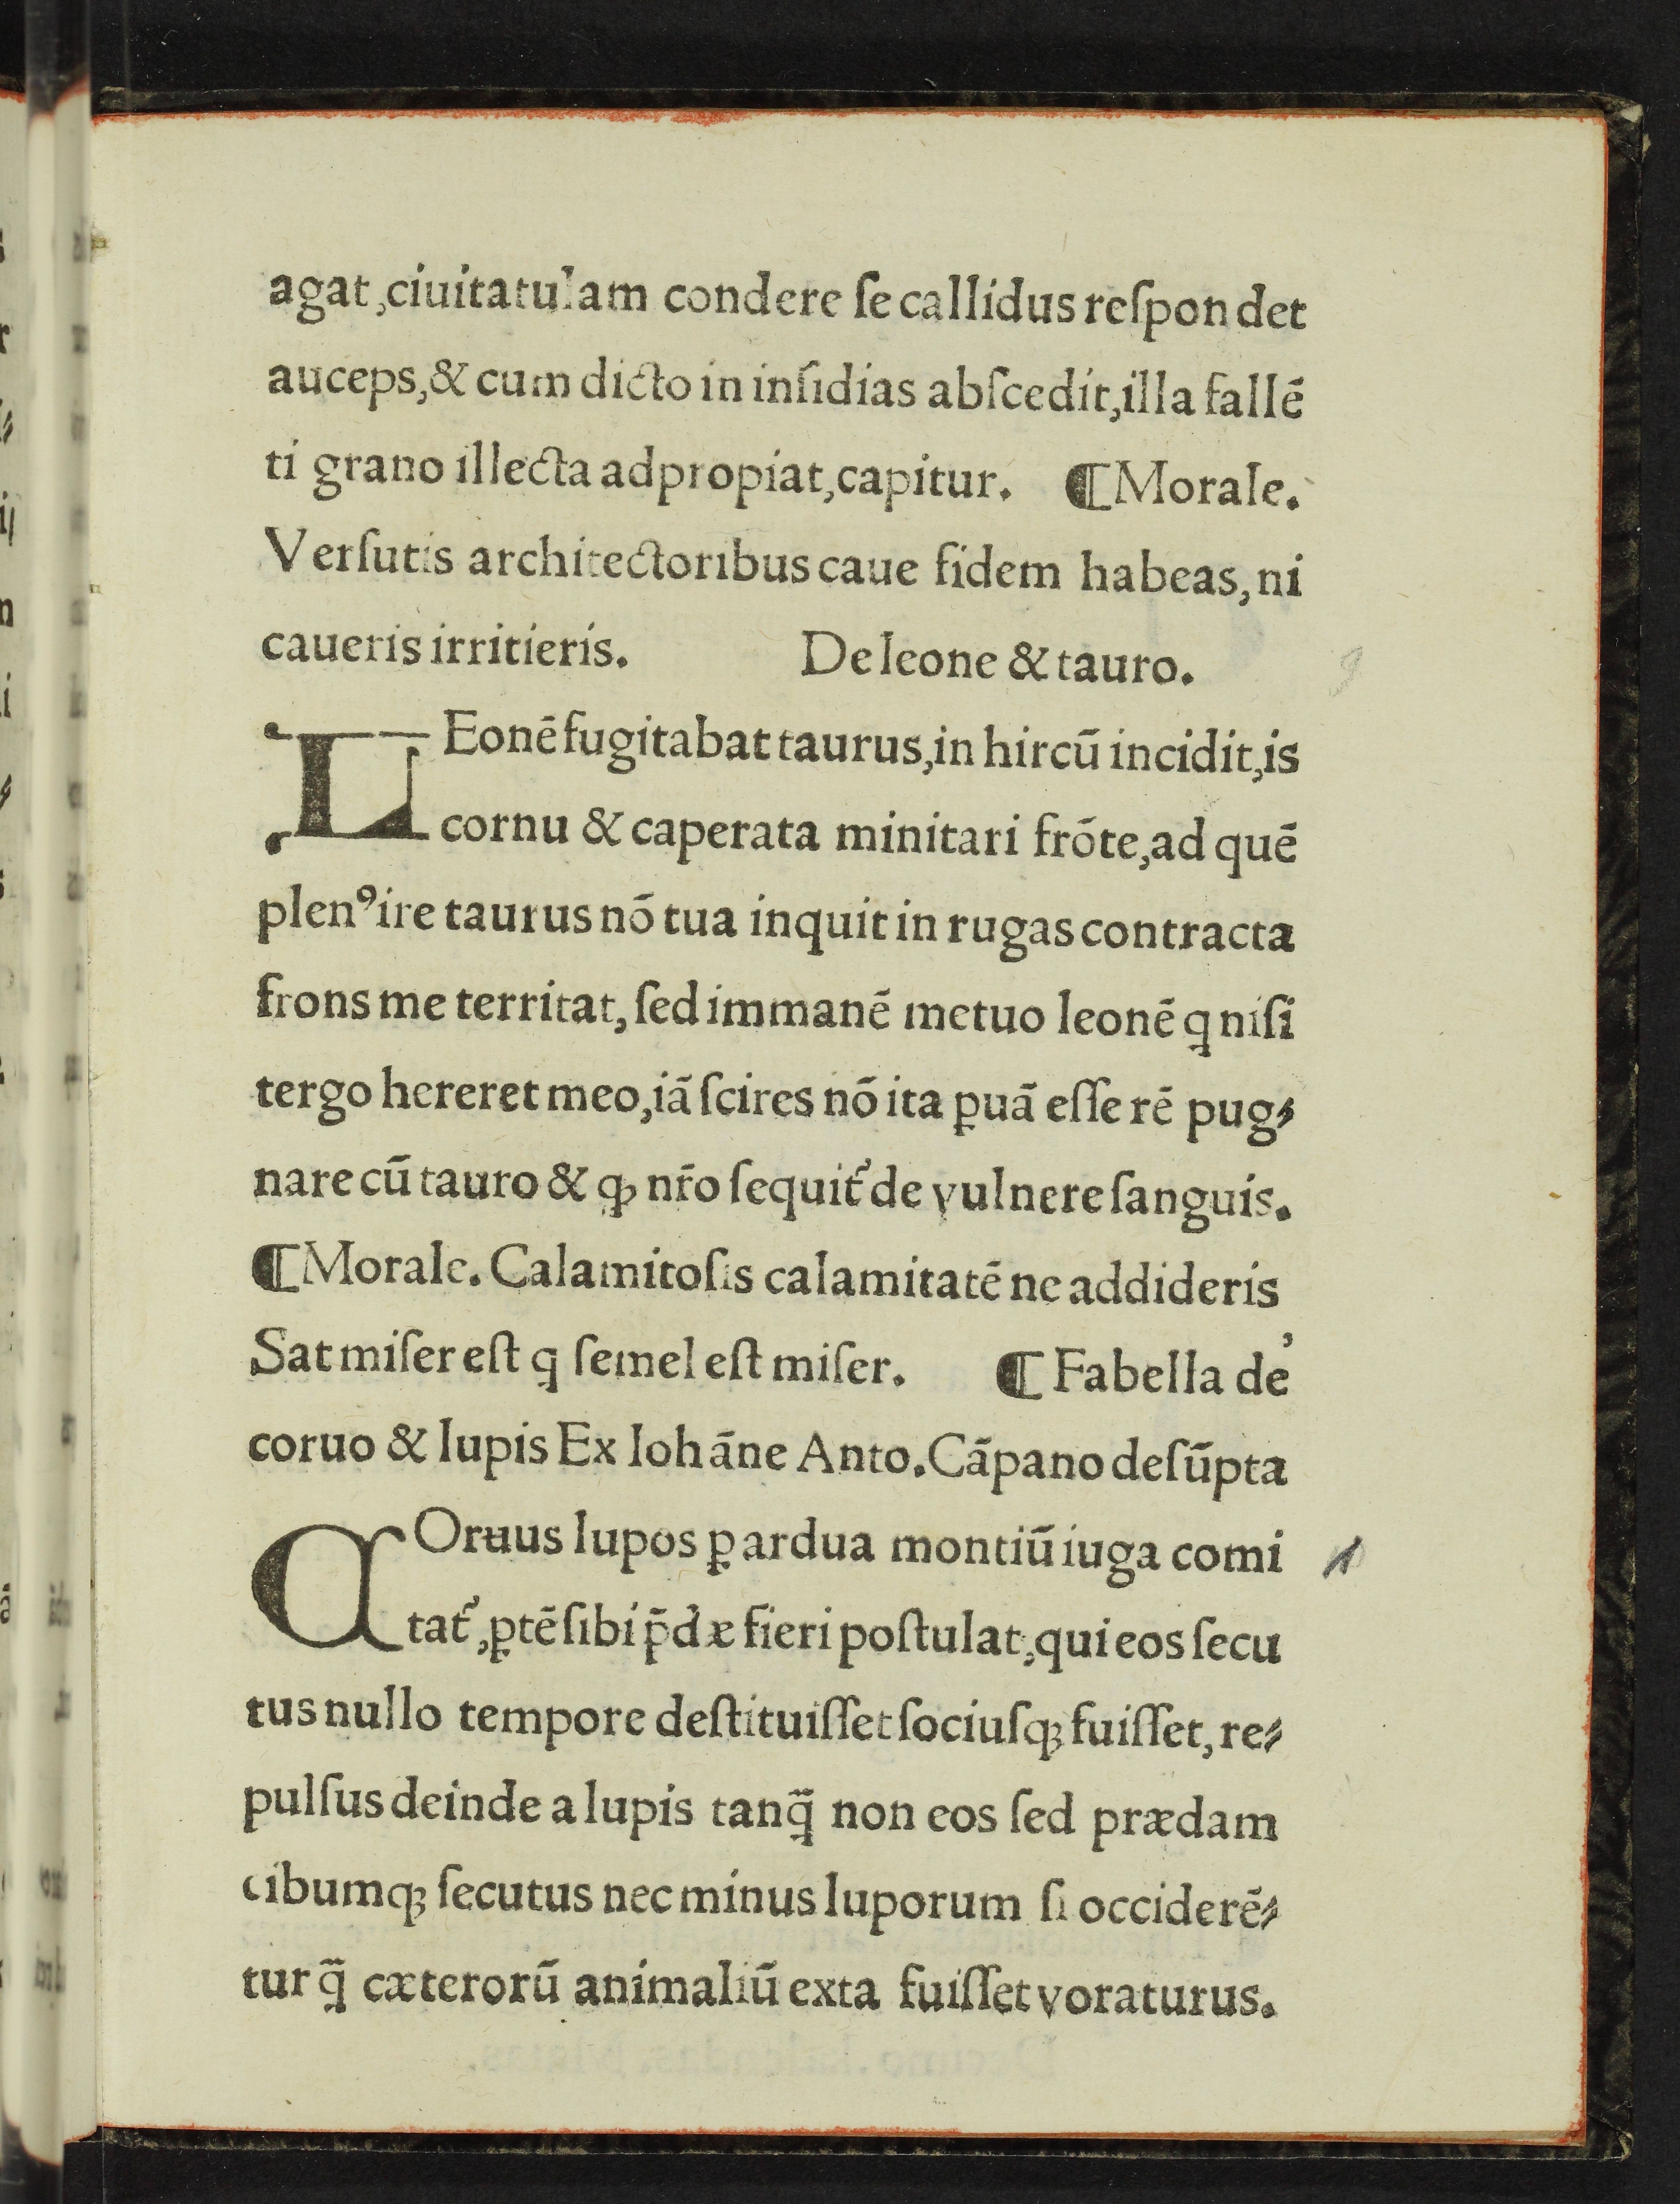 agat,ciuitatulam condere ſe callidus reſpondet
auceps,& cum dicto in inſidias abſcedit,illa fallē
ti grano illecta adpropiat,capitur. ¶Morale.
Verſutis architectoribus caue fidem habeas, ni
caueris irritieris. De leone & tauro.
LEonē fugitabat taurus,in hircū incidit,is
cornu & caperata minitari frōte,ad quē
plenꝰire taurus nō tua inquit in rugas contracta
frons me territat, ſed immanē metuo leonē ꝗ niſi
tergo hereret meo,iā ſcires nō ita ꝑuā eſſe rē pug⸗
nare cū tauro & ꝙ nr̄o ſequit᷑ de vulnere ſanguis.
¶Morale. Calamitoſis calamitatē ne addideris
Sat miſer eſt ꝗ ſemel eſt miſer. ¶ Fabella de
coruo & lupis Ex Iohāne Anto.Cāpano deſūpta
COruus lupos ꝑ ardua montiū iuga comi
tat᷑,ꝑtē ſibi p̄dæ fieri poſtulat,qui eos ſecu
tus nullo tempore deſtituiſſet ſociuſqꝫ fuiſſet, re⸗
pulſus deinde a lupis tanꝗ̃ non eos ſed prædam
cibumqꝫ ſecutus nec minus luporum ſi occiderē⸗
tur ꝗ̃ cæterorū animaliū exta fuiſſet voraturus.